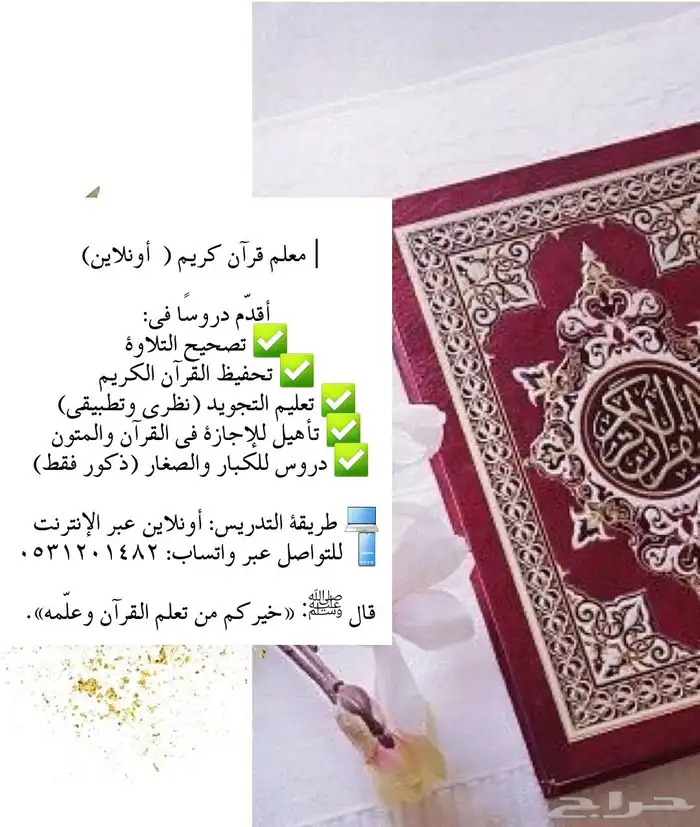 | معلم قرآن كريم ( أونلاين)
أقدّم دروسًا في:
✅ تصحيح التلاوة
✅ تحفيظ القرآن الكريم
✅ تعليم التجويد (نظري وتطبيقي)
✅ تأهيل للإجازة في القرآن والمتون
✅ دروس للكبار والصغار (ذكور فقط)
💻 طريقة التدريس: أونلاين عبر الإنترنت
📱 للتواصل عبر واتساب: ٠٥٣١٢٠١٤٨٢
قال ﷺ: «خيركم من تعلم القرآن وعلّمه».
القرآن الكريم
حراج